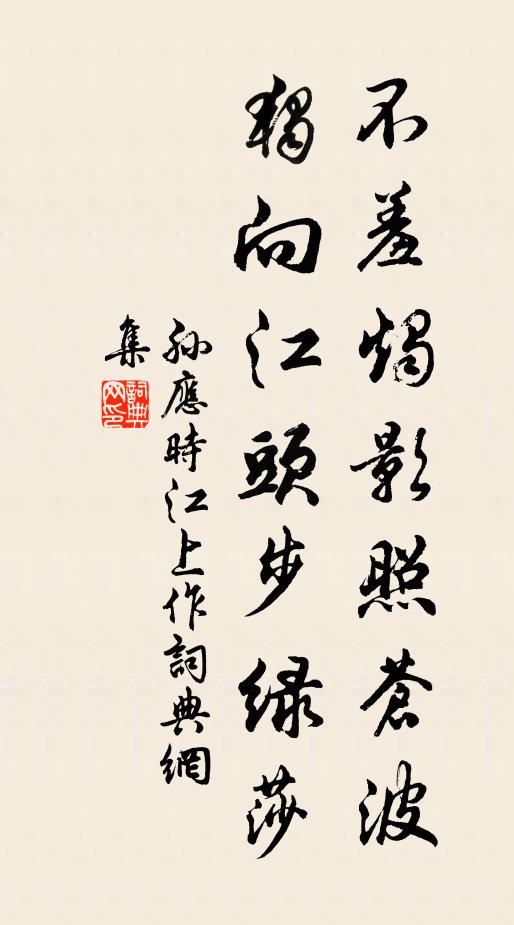 不羞燭影照蒼波
獨向江頭步綠莎
孫應時江上作詞典網
集
詞典網印